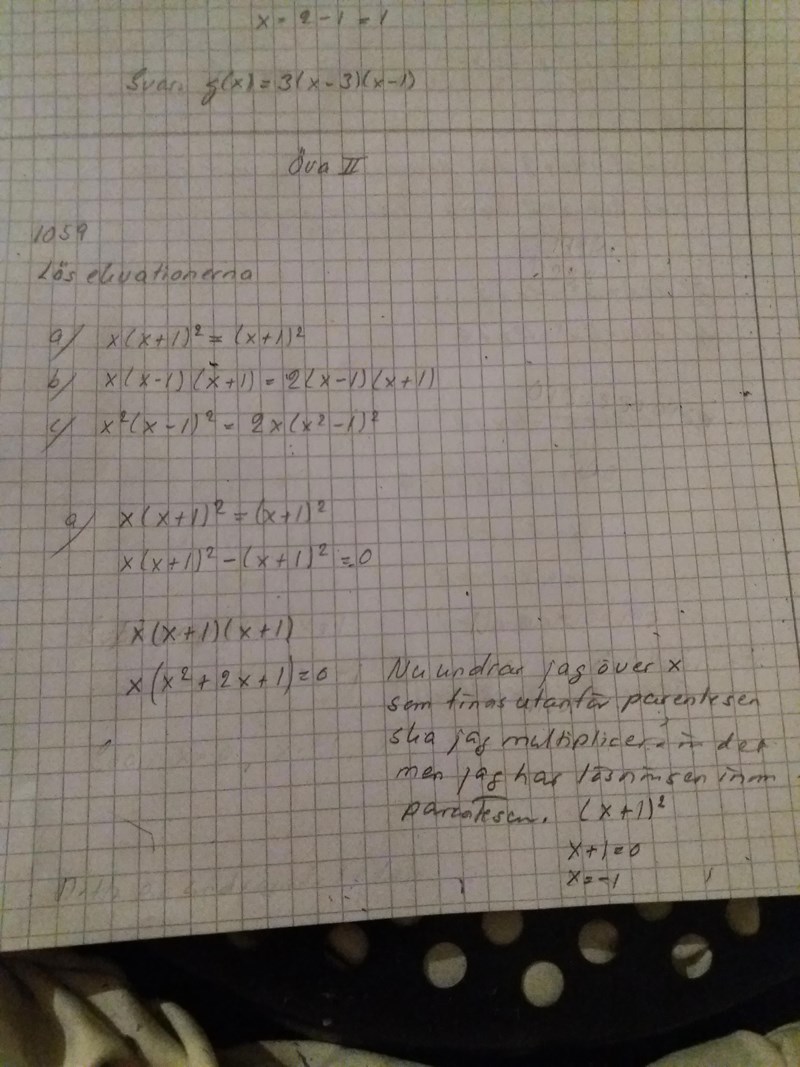 x = 2 - 1 = 1
Svar: g(x) = 3(x-3)(x-1)
Öva II
1059
Lös ekvationerna
a) x(x+1)² = (x+1)²
b) x(x-1)(x+1) = 2(x-1)(x+1)
c) x²(x-1)² = 2x(x²-1)²
a) x(x+1)² = (x+1)²
x(x+1)² - (x+1)² = 0
x(x+1)(x+1)
x(x²+2x+1) = 0
Nu undrar jag över x
som finns utanför parentesen
ska jag multiplicera in det
men jag har lösningen inom
parentesen. (x+1)²
x+1=0
x=-1